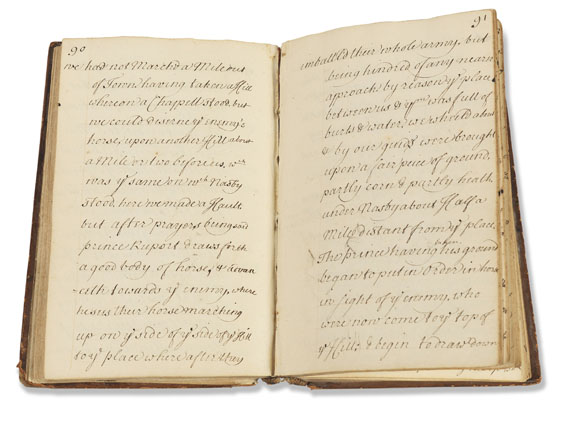 90
we had not Marchd a Mile out
of Town having taken a Hill
whereon a Chappell stood, but
we could discerne yᵉ Enemy's
horse, upon another Hill about
a Mile or two before us, wᶜʰ
was yᵉ same on wᶜʰ Nasby
stood here we made a Hault
but after prayers being
prince Rupert draws forth
a good body of horse, & advan
ceth towards yᵉ enemy, where
he sees their horse marching
up on yᵉ side of yᵉ side of yᵉ Hill
to yᵉ place where after they
91
imballed their whole army, but
being hindred of any nearer
aproach by reason yᵉ place
between us & yᵐ was full of
burts & water, we wheeld about
& by our guids were brought
upon a fair peice of ground,
partly corn & partly heath
under Nasby about Half a
Mile distant from yᵉ place,
The prince having taken his ground
began to put in Order in horse
in sight of yᵉ enemy, who
were now come to yᵉ top of
yᵉ Hill & begin to draw down